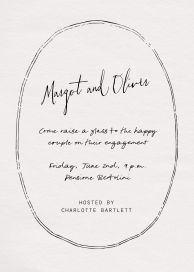 Margot and Oliver
Come raise a glass to the happy
couple on their engagement
Friday, June 2nd, 9 p.m.
Pensione Bertolini
HOSTED BY
CHARLOTTE BARTLETT